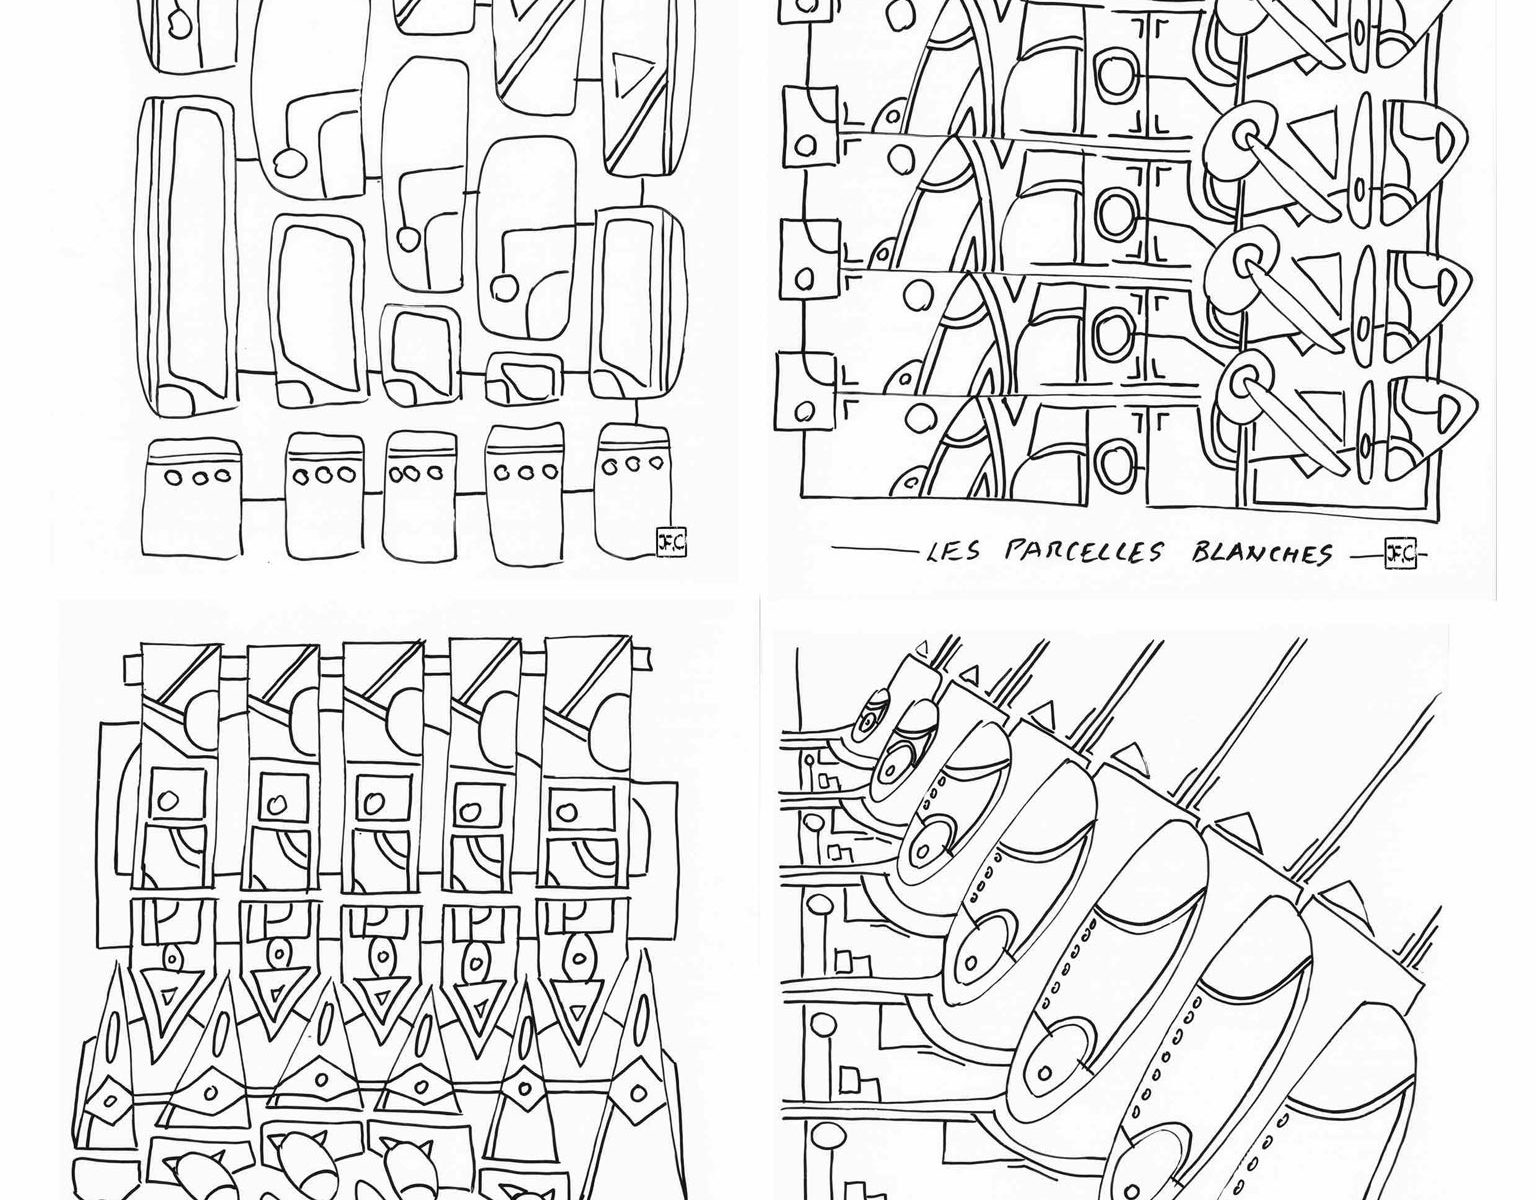 JF.C
LES PARCELLES BLANCHES
JF.C